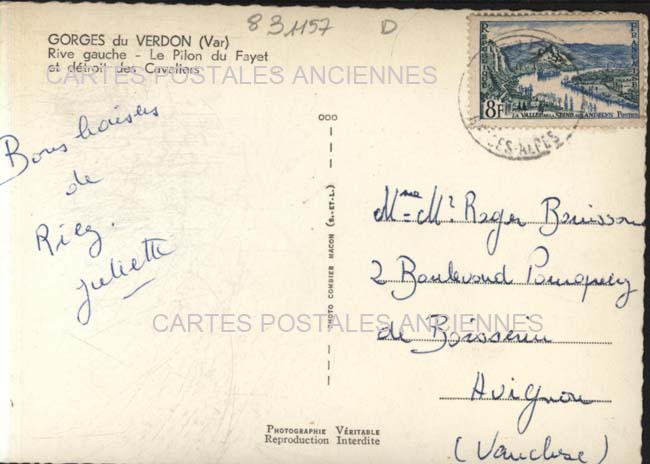 8 3 1157 D
GORGES du VERDON (Var)
Rive gauche - Le Pilon du Fayet
et détroit des Cavaliers
CARTES POSTALES ANCIENNES
RÉPUBLIQUE FRANÇAISE
8F
LA VALLÉE DE LA SEINE AUX ANDELYS Postes
SES-ALPES
Bons baisers
de
Riez.
Juliette
PHOTO COMBIER MACON (S.-ET-L.)
Mme Mr Roger
2 Boulevard
CARTES POSTALES ANCIENNES
de
Avignon
(Vaucluse)
PHOTOGRAPHIE VÉRITABLE
Reproduction Interdite